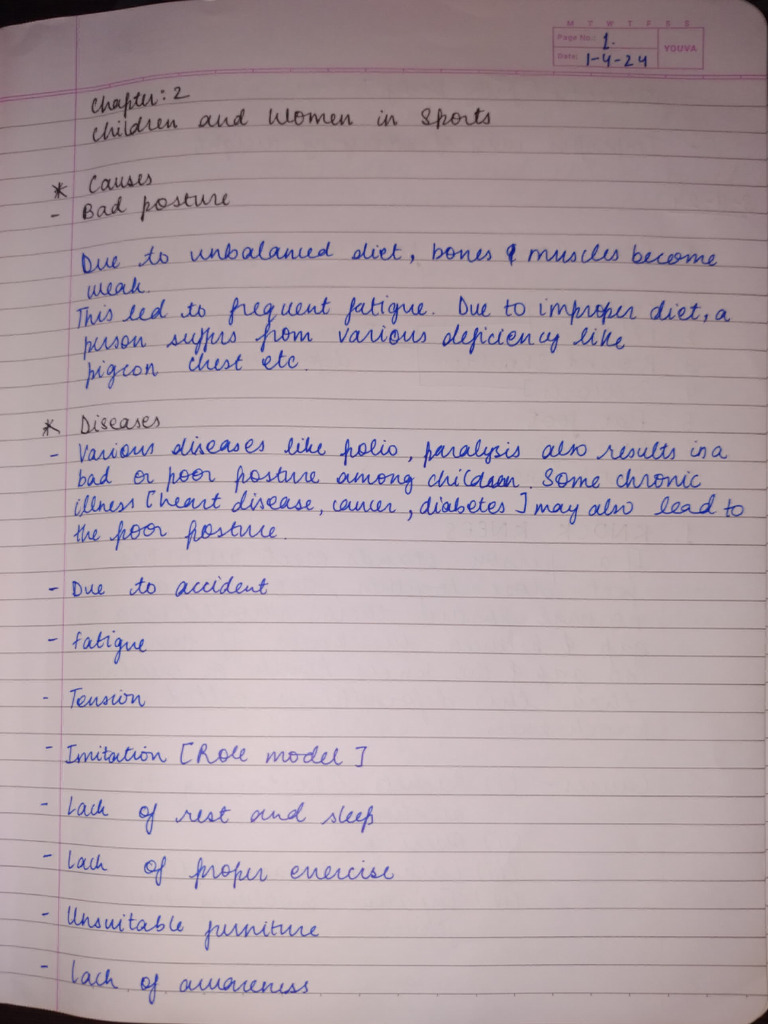 M T W T F S S
Page No.: 1.
YOUVA
Date: 1-4-24
Chapter: 2
Children and Women in Sports
* Causes
- Bad posture
Due to unbalanced diet, bones & muscles become
weak.
This led to frequent fatigue. Due to improper diet, a
person suffrs from various deficiency like
pigeon chest etc.
* Diseases
- Various diseases like polio, paralysis also results in a
bad or poor posture among children. Some chronic
illness [heart disease, cancer, diabetes] may also lead to
the poor posture.
- Due to accident
- fatigue
- Tension
- Imitation [Role model]
- Lack of rest and sleep
- Lack of proper exercise
- Unsuitable furniture
- Lack of awareness